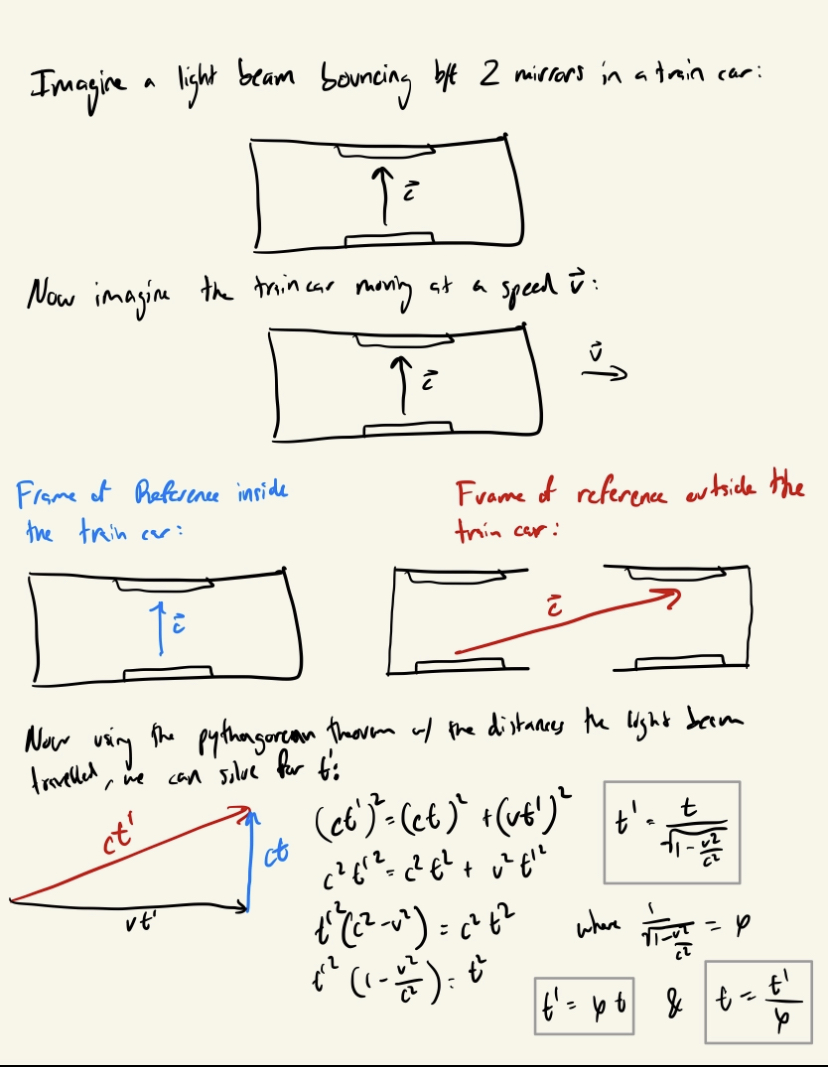 Imagine a light beam bouncing b/t 2 mirrors in a train car:
c⃗
Now imagine the train car moving at a speed v⃗:
c⃗
v⃗
Frame of Reference inside
the train car:
c⃗
Frame of reference outside the
train car:
c⃗
Now using the pythagorean theorem w/ the distances the light beam
travelled, we can solve for t':
ct'
ct
vt'
(ct')² = (ct)² + (vt')²
c²t'² = c²t² + v²t'²
t'²(c²-v²) = c²t²
t'²(1-v²/c²) = t²
t' = t/√(1-v²/c²)
where 1/√(1-v²/c²) = φ
t' = φt & t = t'/φ